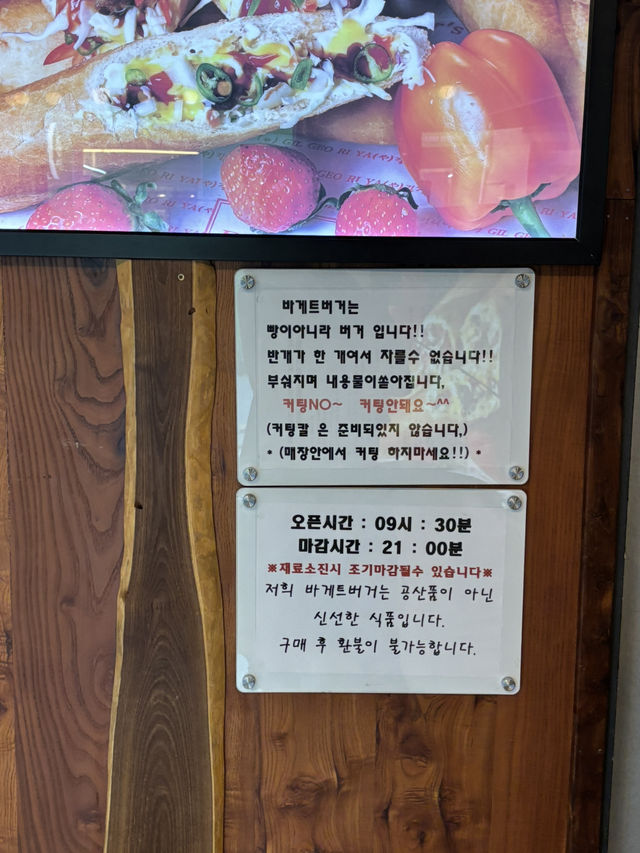 GIL GEO RI YA(야)
GEO RI YA(야)
GIL GEO RI YA(야)
바게트버거는
빵이아니라 버거 입니다!!
반개가 한 개여서 자를수 없습니다!!
부숴지며 내용물이쏟아집니다,
커팅NO~ 커팅안돼요~^^
(커팅칼 은 준비되있지 않습니다,)
* (매장안에서 커팅 하지마세요!!) *
오픈시간 : 09시 : 30분
마감시간 : 21 : 00분
※재료소진시 조기마감될수 있습니다※
저희 바게트버거는 공산품이 아닌
신선한 식품입니다.
구매 후 환불이 불가능합니다.